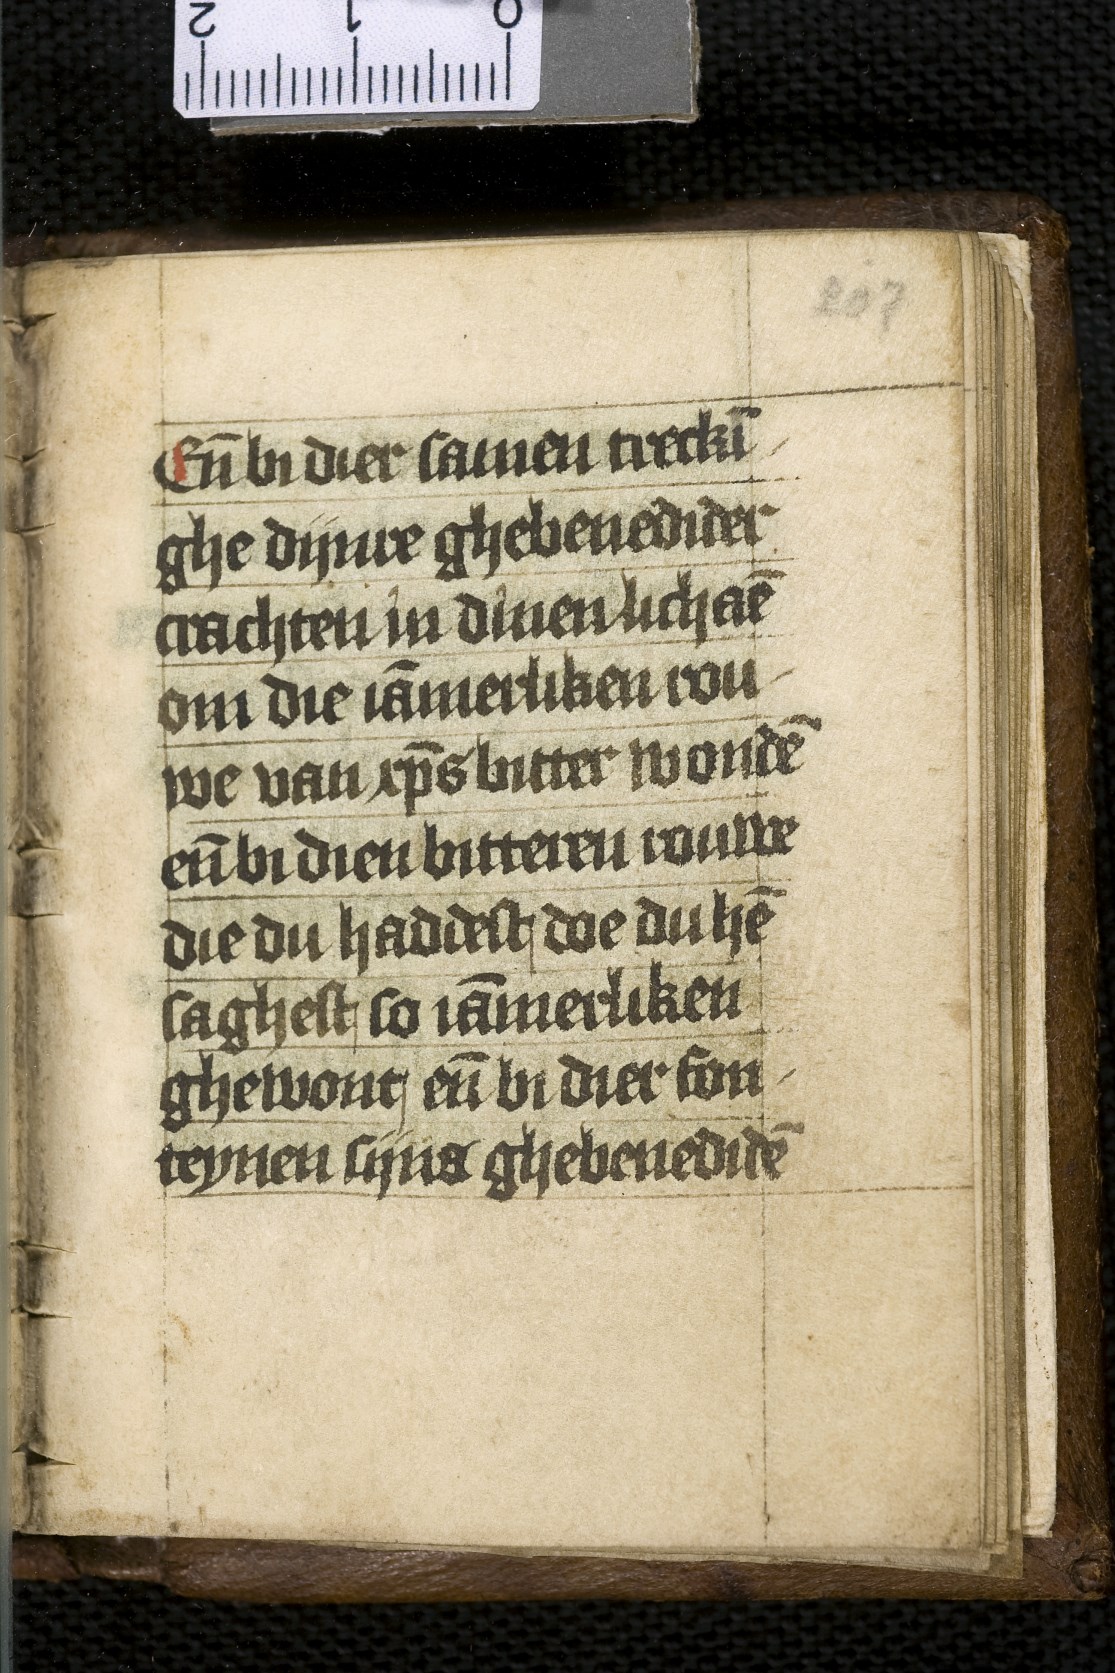 2 1 0
207
En̄ bi dier samen treckī
ghe dijnre ghebenedider
crachten in dinen lichaē
om die iāmerliken rou
we van xp̄s bitter wondē
en̄ bi dien bitteren rouwe
die du haddest doe du hē
saghest so iāmerliken
ghewont en̄ bi dier fon
teynen sijns ghebenedidē